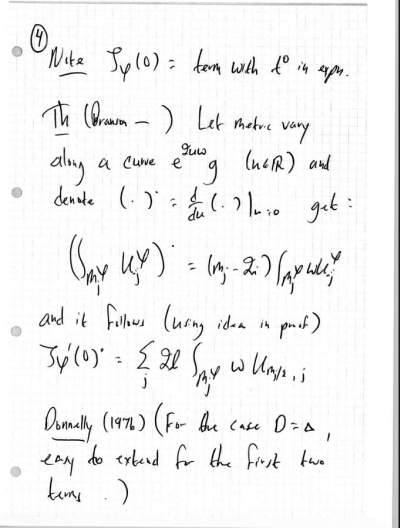 ④
Note ζφ(0) = term with t⁰ in expn.
Th (Branson – ) Let metric vary
along a curve e^{2uω}g (u∈ℝ) and
denote (.)˙ = d/du (.)|u=0 get :
(∫_{m_j^φ} U_i^φ)˙ = (m_j - 2i) ∫_{m_j^φ} ω U_i^φ
and it follows (using idea in proof)
ζφ'(0)˙ = Σ_j 2l ∫_{m_j^φ} ω U_{m_j/2, j}
Donnelly (1976) (For the case D = Δ,
easy to extend for the first two
terms . )